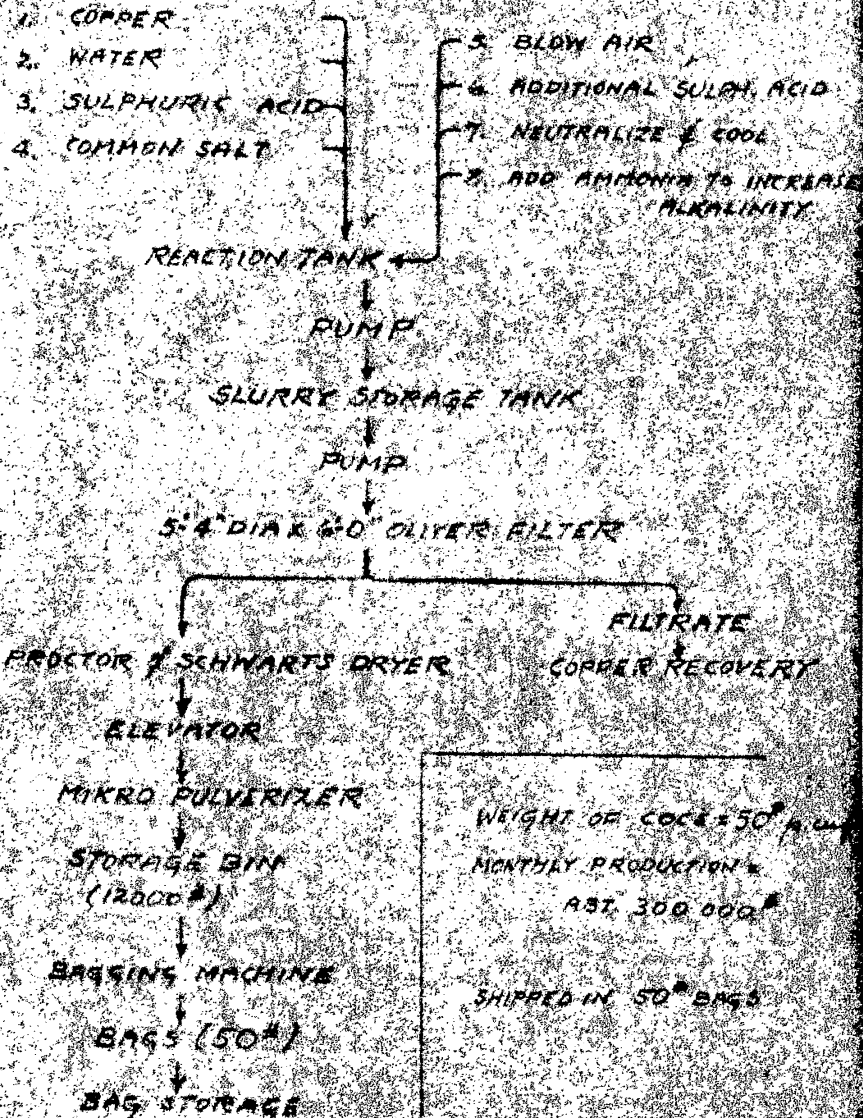 1. COPPER
2. WATER
3. SULPHURIC ACID
4. COMMON SALT
5. BLOW AIR
6. ADDITIONAL SULPH. ACID
7. NEUTRALIZE & COOL
8. ADD AMMONIA TO INCREASE
ALKALINITY
REACTION TANK
PUMP
SLURRY STORAGE TANK
PUMP
5'4" DIA X 6'0" OLIVER FILTER
FILTRATE
COPPER RECOVERY
PROCTOR & SCHWARTS DRYER
ELEVATOR
MIKRO PULVERIZER
STORAGE BIN
(12000#)
BAGGING MACHINE
BAGS (50#)
BAG STORAGE
WEIGHT OF COCS = 50#
MONTHLY PRODUCTION =
ABT. 300 000#
SHIPPED IN 50# BAGS